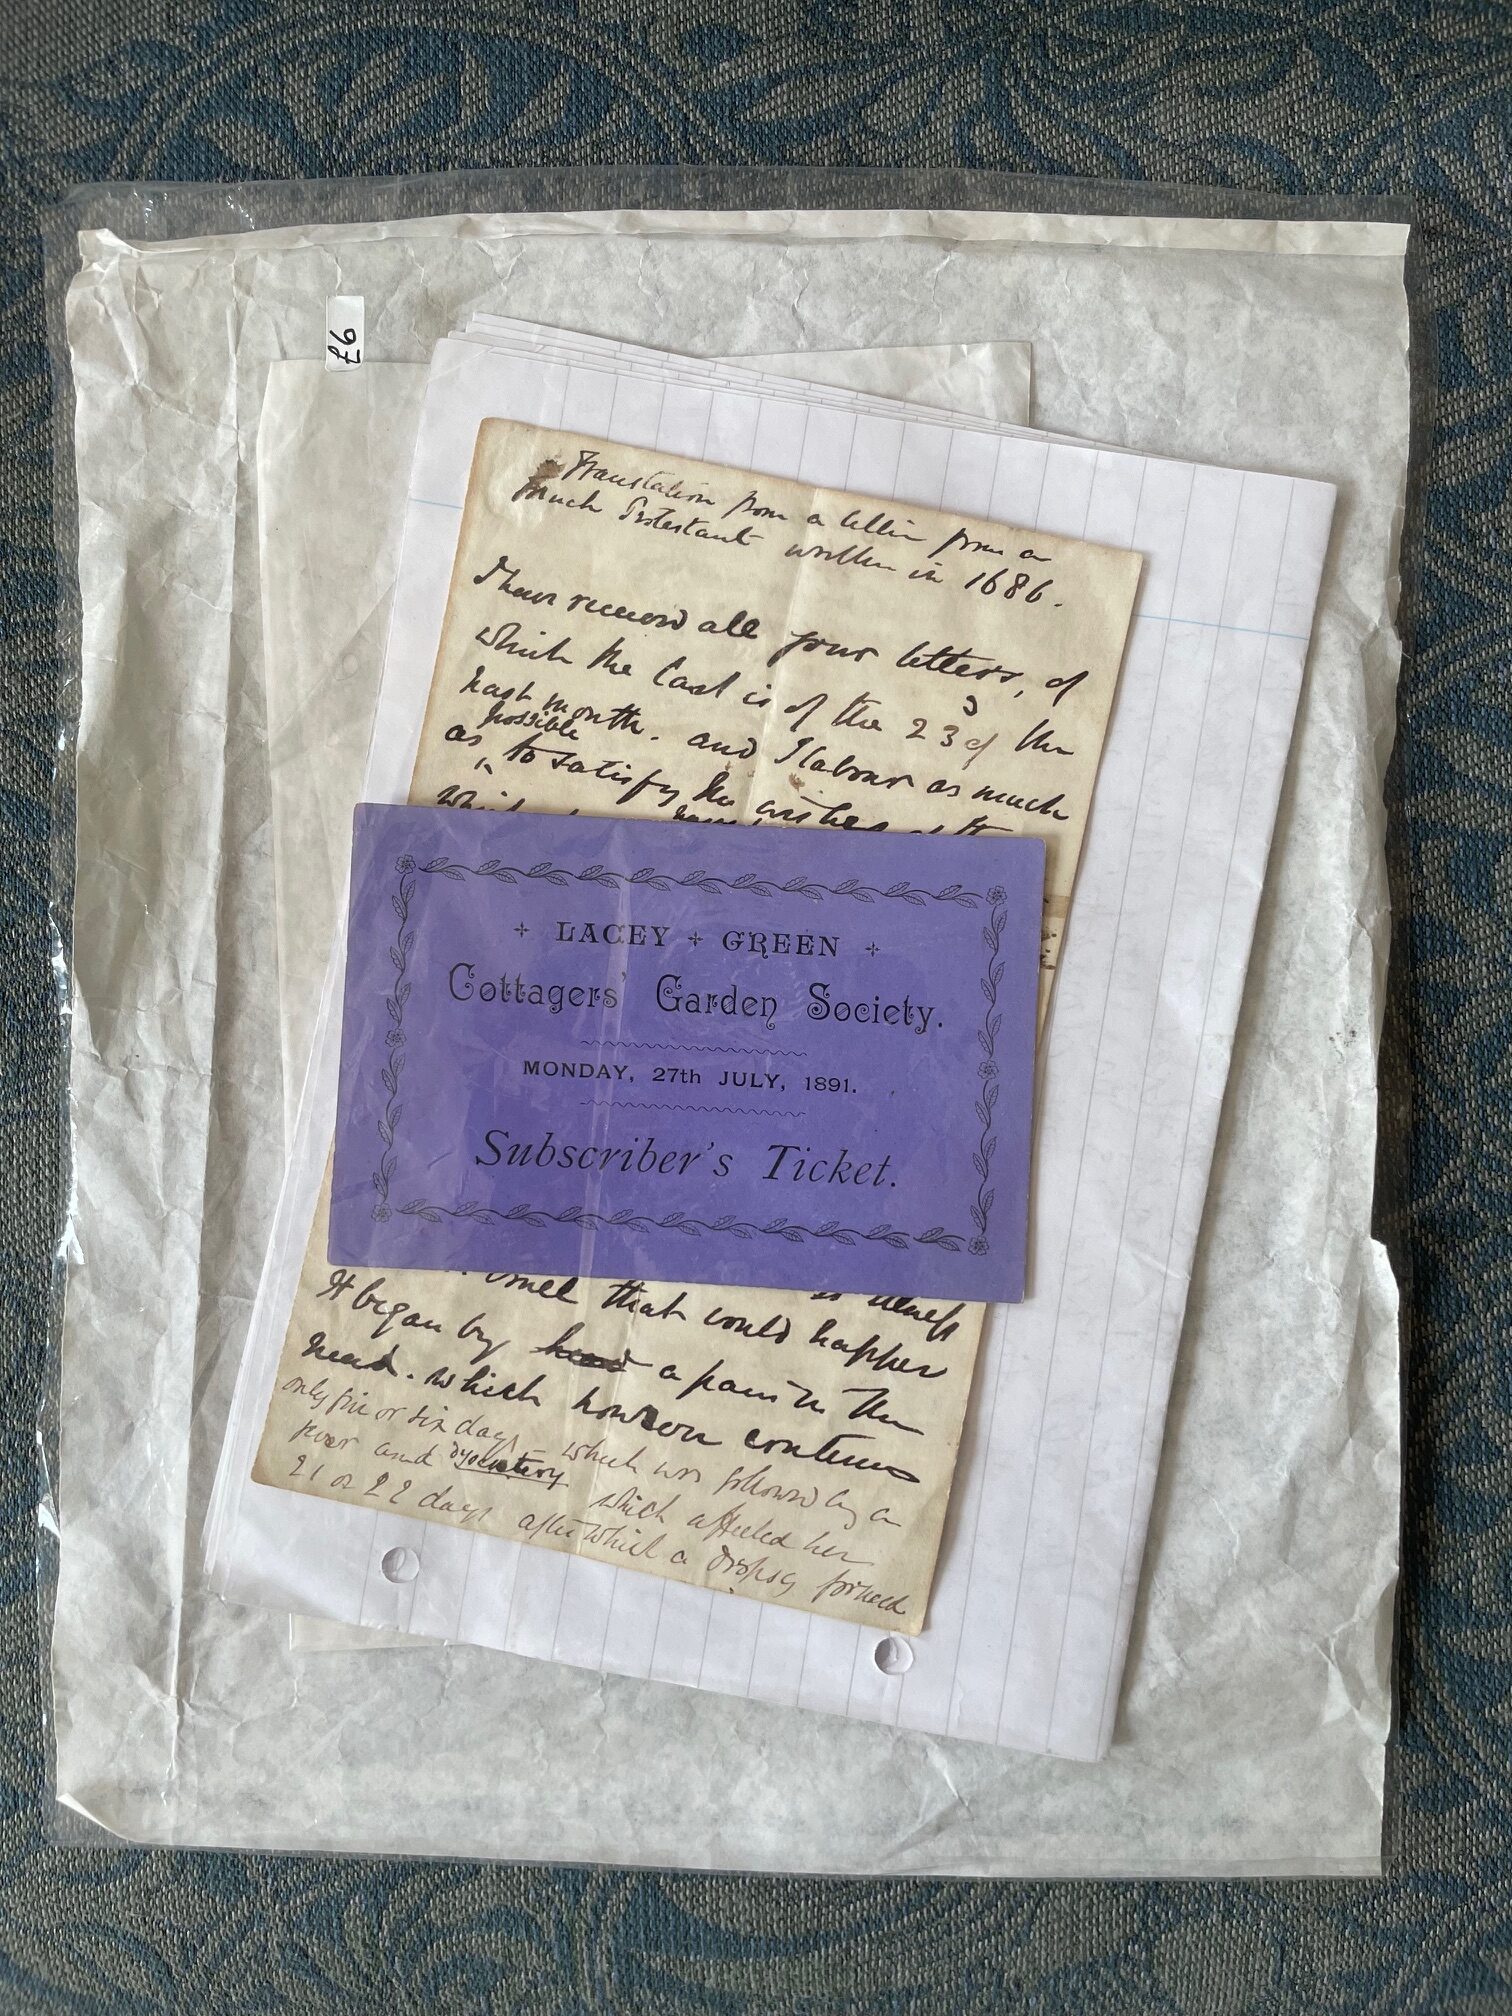 £6
Translation from a letter from a
much Protestant written in 1686.
I have received all your letters, of
which the last is of the 23d of the
past month. and I labour as much
possible
as ‸ to satisfy the wishes of th
+ LACEY + GREEN +
Cottagers' Garden Society.
MONDAY, 27th JULY, 1891.
Subscriber's Ticket.
illness
that would happen
It began by head a pain in the
head. which however continues
only five or six days which was followed by a
and dysentery which affected her
21 or 22 days after which a dropsy formed